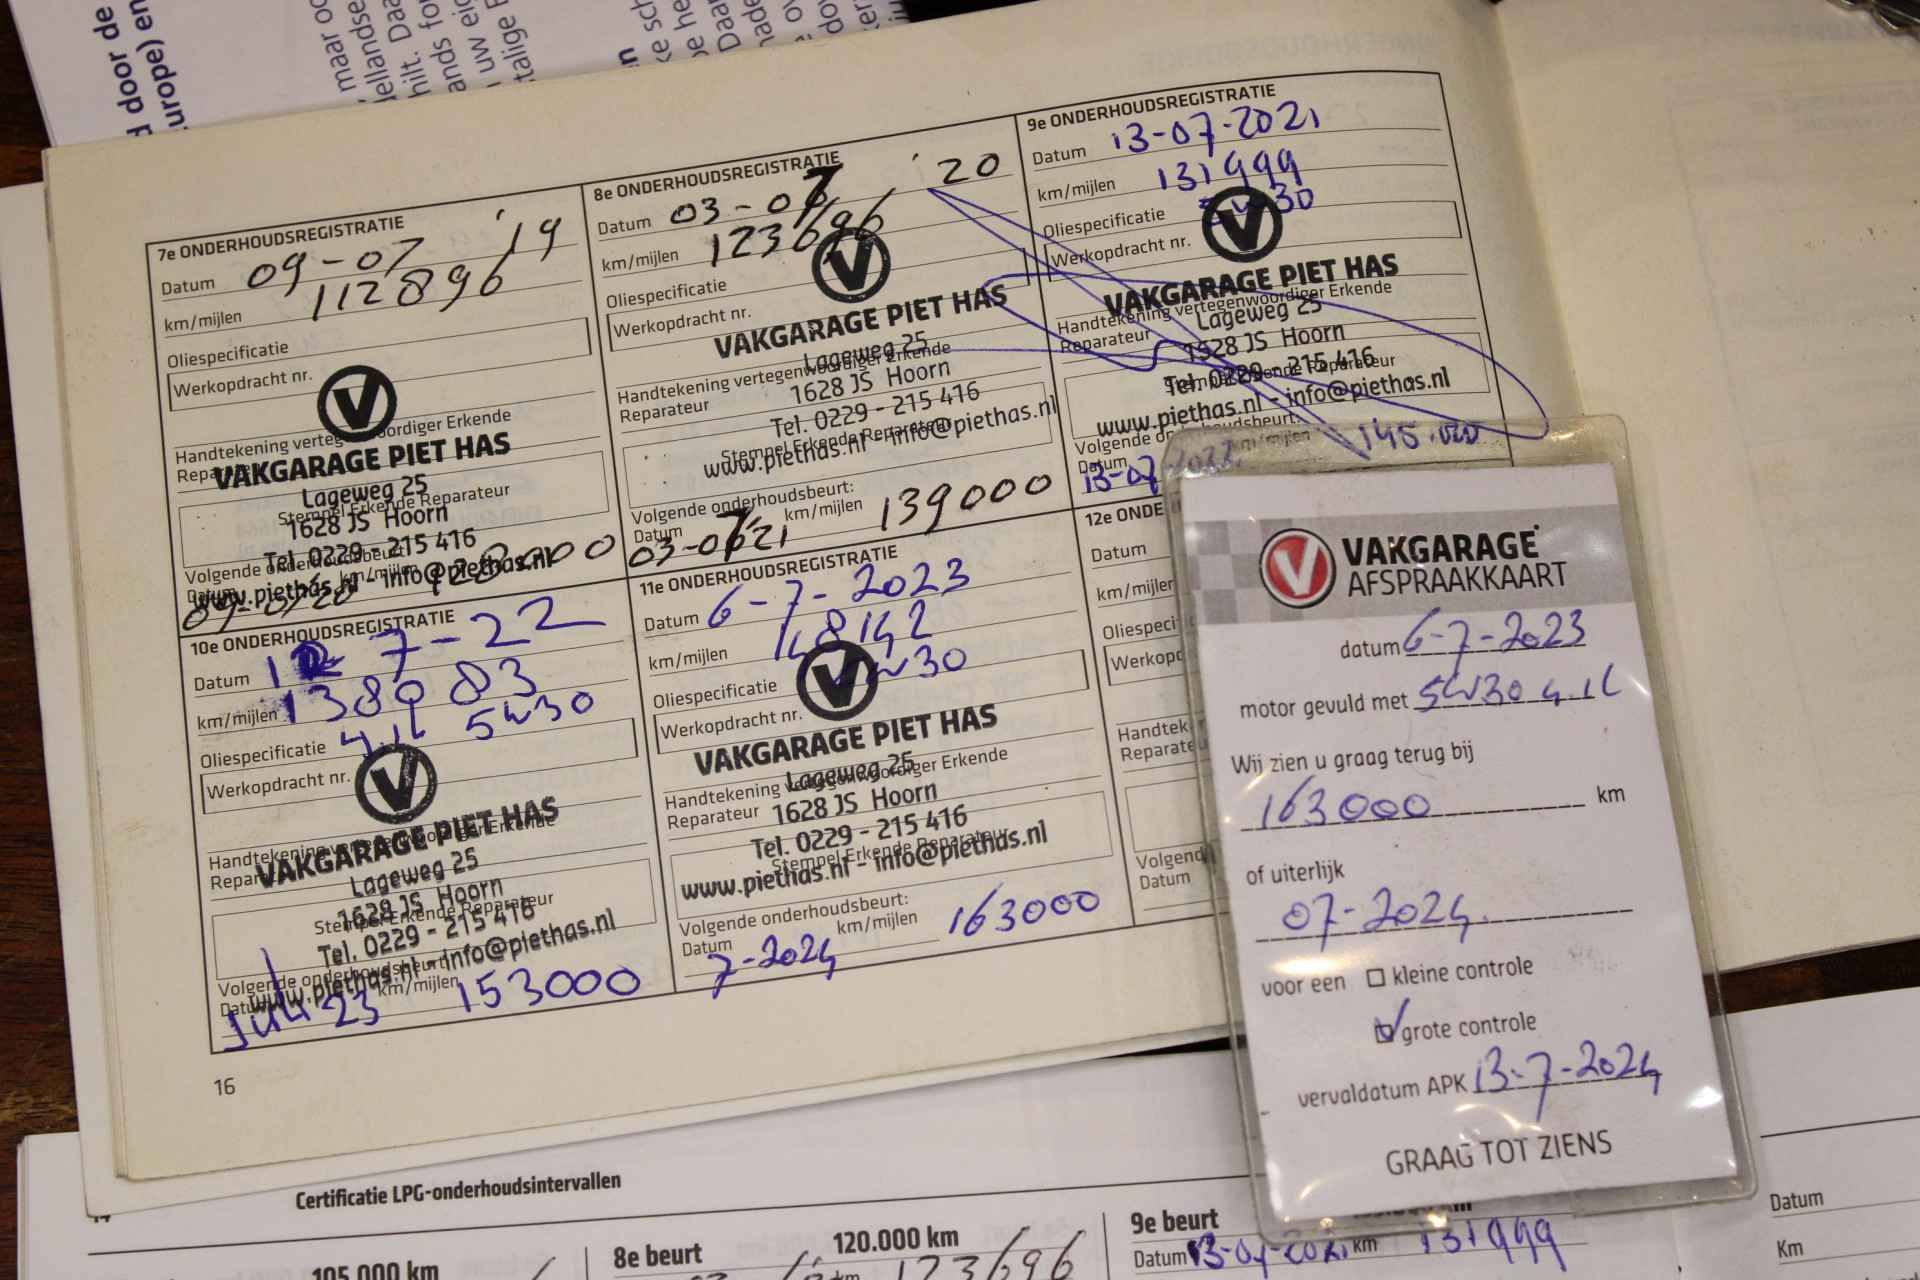 7e ONDERHOUDSREGISTRATIE
Datum 09-07 '19
km/mijlen 112896
Oliespecificatie
Werkopdracht nr.
VAKGARAGE PIET HAS
Lageweg 25
Stempel Erkende Reparateur
1628 JS Hoorn
Tel. 0229 - 215 416
Volgende onderhoudsbeurt:
www.piethas.nl - info@piethas.nl
8e ONDERHOUDSREGISTRATIE
Datum 03-07 '20
km/mijlen 123696
Oliespecificatie
Werkopdracht nr.
VAKGARAGE PIET HAS
Lageweg 25
Handtekening vertegenwoordiger Erkende
Reparateur
1628 JS Hoorn
Tel. 0229 - 215 416
Stempel Erkende Reparateur
www.piethas.nl - info@piethas.nl
Volgende onderhoudsbeurt:
Datum km/mijlen 139000
03-07 '21
9e ONDERHOUDSREGISTRATIE
Datum 13-07-2021
km/mijlen 131999
Oliespecificatie 5w30
Werkopdracht nr.
VAKGARAGE PIET HAS
Handtekening vertegenwoordiger Erkende
Lageweg 25
Reparateur
1628 JS Hoorn
Tel. 0229 - 215 416
www.piethas.nl - info@piethas.nl
km/mijlen 145.000
Datum
13-07-2022
10e ONDERHOUDSREGISTRATIE
Datum 7-22
km/mijlen 138983
Oliespecificatie 4,1L 5w30
Werkopdracht nr.
Handtekening vertegenwoordiger Erkende
VAKGARAGE PIET HAS
Lageweg 25
1628 JS Hoorn
Stempel Erkende Reparateur
Tel. 0229 - 215 416
Volgende onderhoudsbeurt:
www.piethas.nl - info@piethas.nl
Datum km/mijlen
Juli 23 153000
11e ONDERHOUDSREGISTRATIE
Datum 6-7-2023
km/mijlen 148142
Oliespecificatie 5w30
Werkopdracht nr.
VAKGARAGE PIET HAS
Lageweg 25
Handtekening vertegenwoordiger Erkende
Reparateur
1628 JS Hoorn
Tel. 0229 - 215 416
Stempel Erkende Reparateur
www.piethas.nl - info@piethas.nl
Volgende onderhoudsbeurt:
Datum km/mijlen 163000
7-2024
12e ONDE
Datum
km/mijlen
Oliespeci
Werkop
Handtek
Reparate
Volgend
Datum
16
VAKGARAGE
AFSPRAAKKAART
datum 6-7-2023
motor gevuld met 5W30 4,1L
Wij zien u graag terug bij
163000 km
of uiterlijk
07-2024.
voor een kleine controle
grote controle
vervaldatum APK 13-7-2024
GRAAG TOT ZIENS
Certificatie LPG-onderhoudsintervallen
105.000 km
8e beurt 120.000 km
123696
9e beurt
Datum 13-07-2021 km 131999
Datum
Km